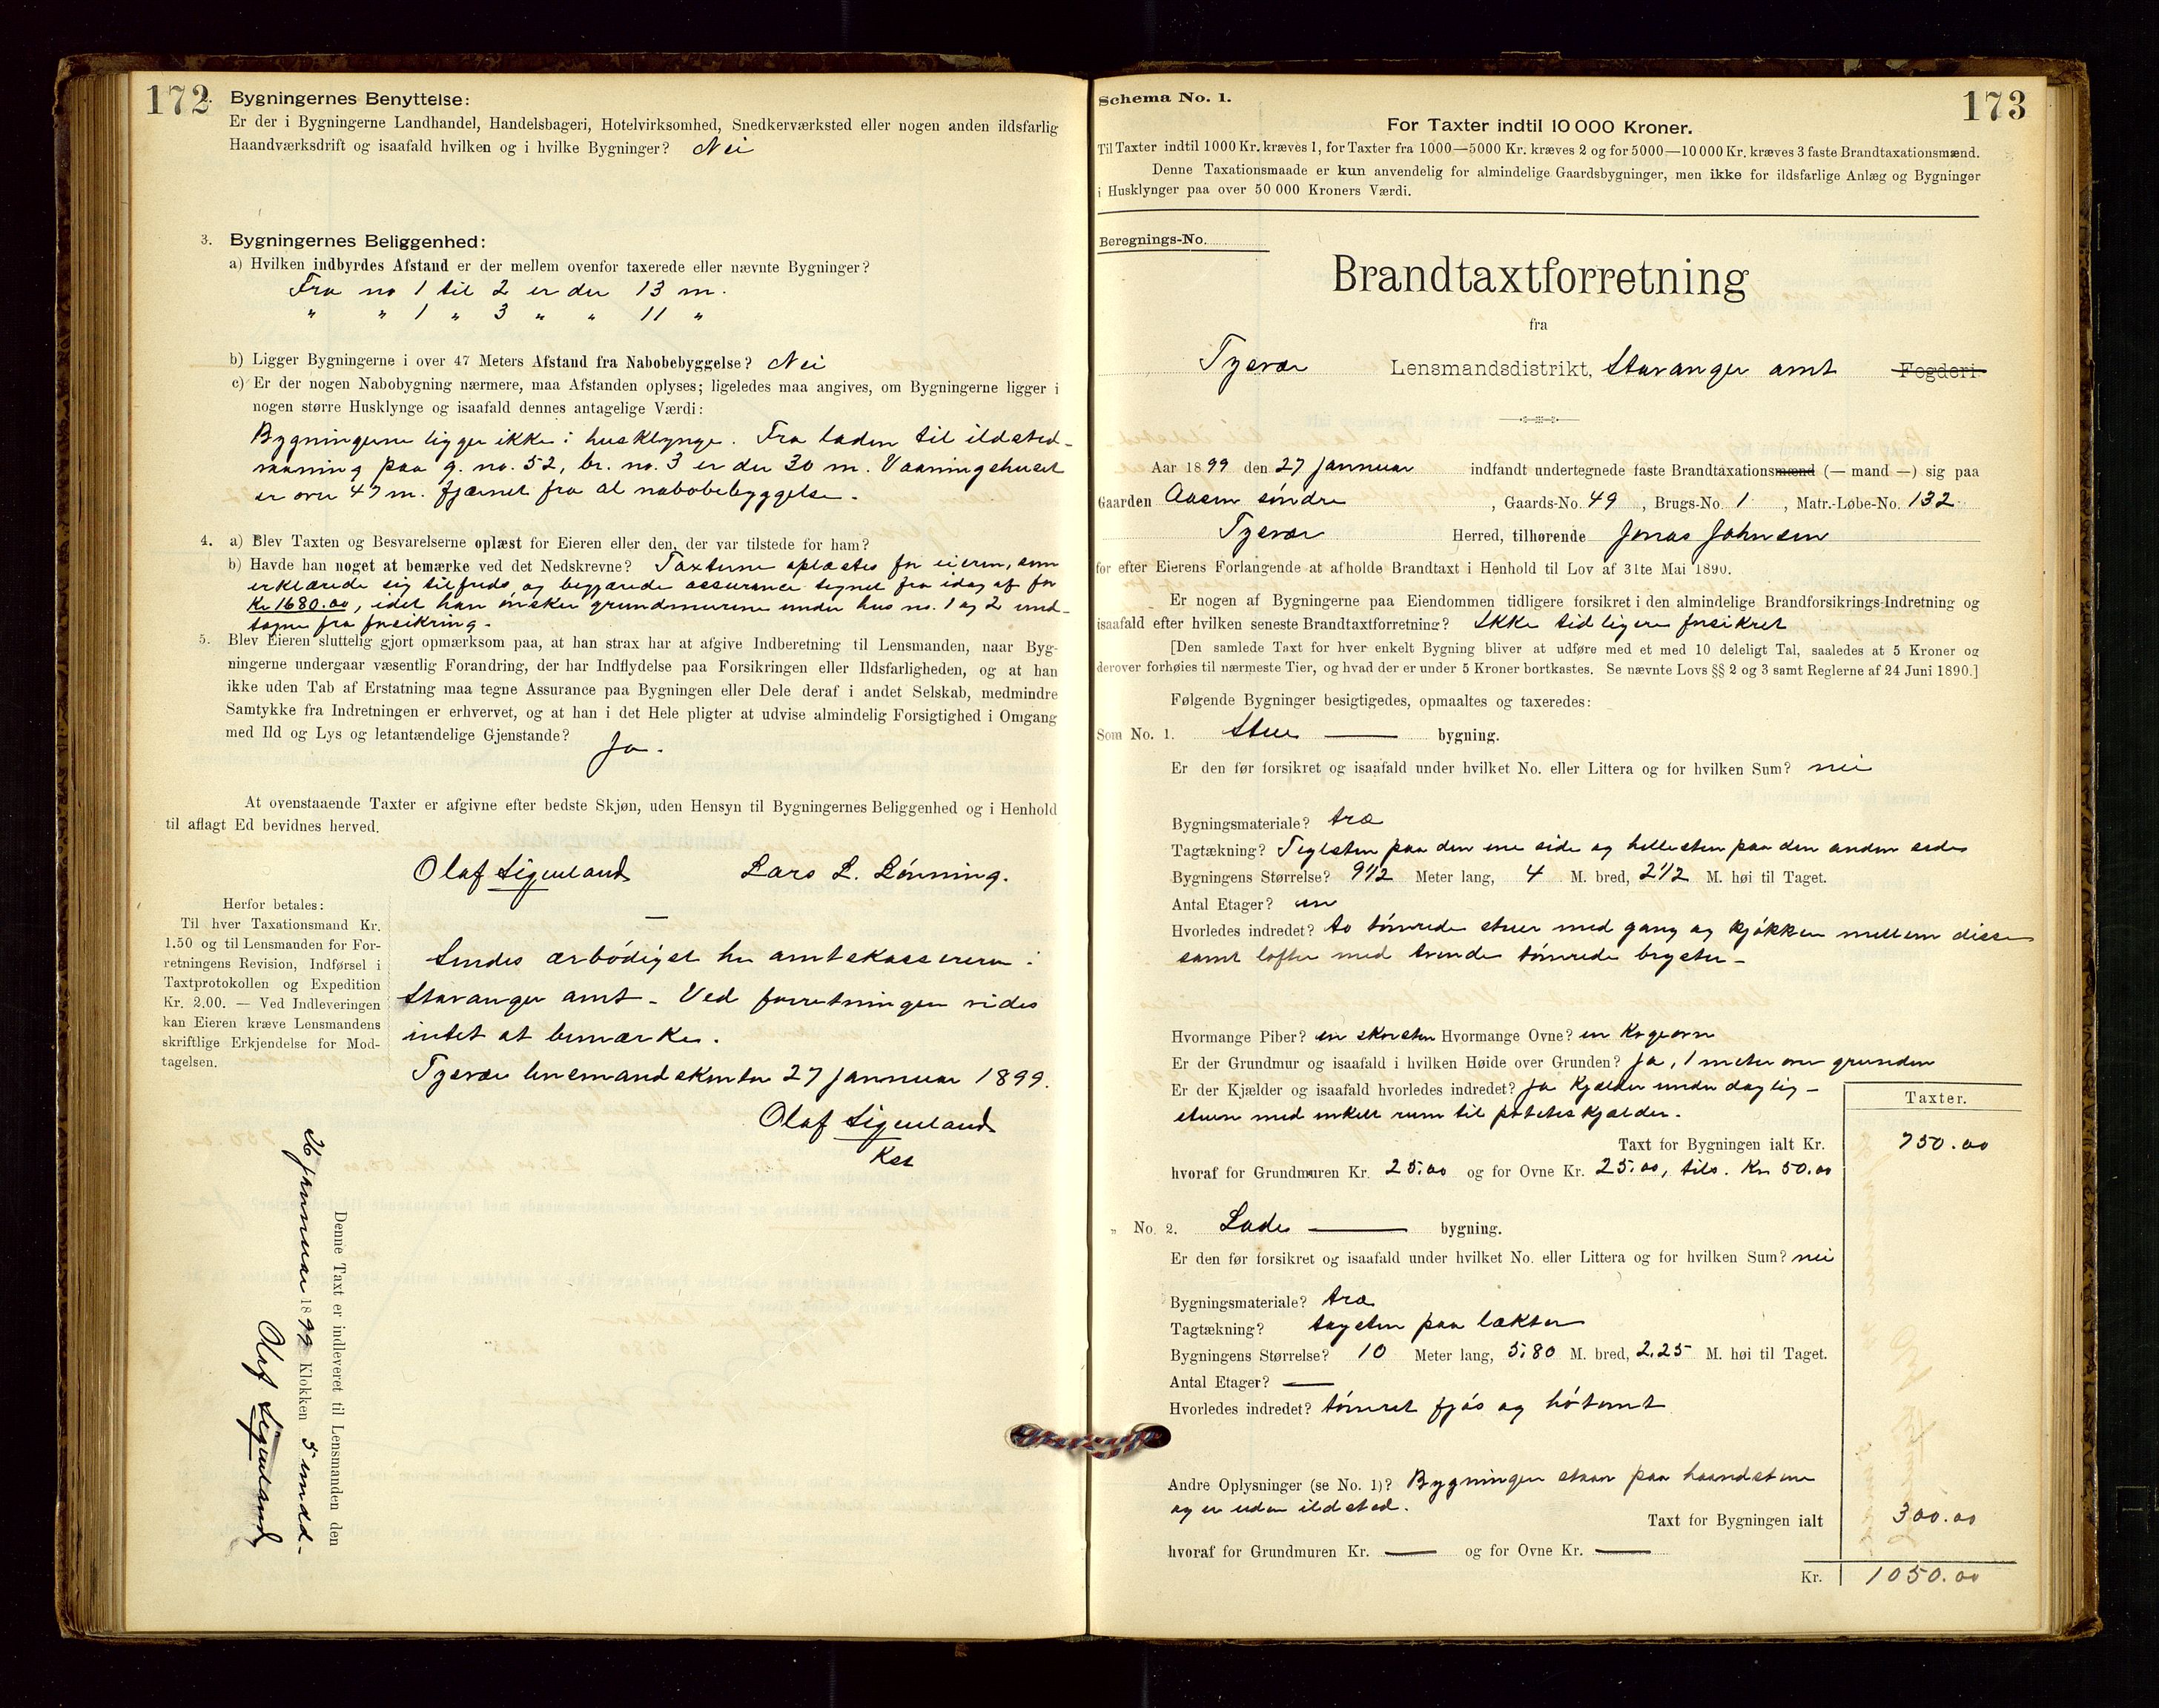 172
2. Bygningernes Benyttelse:
Er der i Bygningerne Landhandel, Handelsbageri, Hotelvirksomhed, Snedkerværksted eller nogen anden ildsfarlig
Haandværksdrift og isaafald hvilken og i hvilke Bygninger? Nei
3. Bygningernes Beliggenhed:
a) Hvilken indbyrdes Afstand er der mellem ovenfor taxerede eller nævnte Bygninger?
Fra no 1 til 2 er der 13 m.
" " 1 " 3 " " 11 "
b) Ligger Bygningerne i over 47 Meters Afstand fra Nabobebyggelse? Nei
c) Er der nogen Nabobygning nærmere, maa Afstanden oplyses; ligeledes maa angives, om Bygningerne ligger i
nogen større Husklynge og isaafald dennes antagelige Værdi:
Bygningerne ligger ikke i husklynge. Fra laden til ildsted-
vaaning paa g. no. 52, br. no. 3 er der 30 m. Vaaningshuset
er over 47 m. fjærnet fra al nabobebyggelse.
4. a) Blev Taxten og Besvarelserne oplæst for Eieren eller den, der var tilstede for ham?
b) Havde han noget at bemærke ved det Nedskrevne? Taxterne oplæstes for eieren, som
erklærede sig tilfreds og begjærede assurance tegnet fra idag af for
Kr 1680.00, idet han ønsker grundmurene under hus no. 1 og 2 und-
tagne fra forsikring.
5. Blev Eieren sluttelig gjort opmærksom paa, at han strax har at afgive Indberetning til Lensmanden, naar Byg-
ningerne undergaar væsentlig Forandring, der har Indflydelse paa Forsikringen eller Ildsfarligheden, og at han
ikke uden Tab af Erstatning maa tegne Assurance paa Bygningen eller Dele deraf i andet Selskab, medmindre
Samtykke fra Indretningen er erhvervet, og at han i det Hele pligter at udvise almindelig Forsigtighed i Omgang
med Ild og Lys og letantændelige Gjenstande? Ja.
At ovenstaaende Taxter er afgivne efter bedste Skjøn, uden Hensyn til Bygningernes Beliggenhed og i Henhold
til aflagt Ed bevidnes herved.
Olaf Lars L. Lönning.
Herfor betales:
Til hver Taxationsmand Kr.
1.50 og til Lensmanden for For-
retningens Revision, Indførsel i
Taxtprotokollen og Expedition
Kr. 2.00. — Ved Indleveringen
kan Eieren kræve Lensmandens
skriftlige Erkjendelse for Mod-
tagelsen.
Sendes ærbödigst hr amtskassereren i
Stavanger amt. Ved forretningen vides
intet at bemærke.
Tysvær lensmandskontor 27 Januar 1899.
Olaf
Kst
Denne Taxt er indleveret til Lensmanden den
26 Januar 1899 Klokken 5 emdd.
Olaf
173
Schema No. 1.
For Taxter indtil 10 000 Kroner.
Til Taxter indtil 1000 Kr. kræves 1, for Taxter fra 1000—5000 Kr. kræves 2 og for 5000—10 000 Kr. kræves 3 faste Brandtaxationsmænd.
Denne Taxationsmaade er kun anvendelig for almindelige Gaardsbygninger, men ikke for ildsfarlige Anlæg og Bygninger
i Husklynger paa over 50 000 Kroners Værdi.
Beregnings-No.
Brandtaxtforretning
fra
Tysvær Lensmandsdistrikt, Stavanger amt Fogderi
Aar 1899 den 27 Januar indfandt undertegnede faste Brandtaxationsmænd (— mand —) sig paa
Gaarden Aasen söndre, Gaards-No. 49, Brugs-No. 1, Matr.-Løbe-No. 132
Tysvær Herred, tilhørende Jonas Johnsen
for efter Eierens Forlangende at afholde Brandtaxt i Henhold til Lov af 31te Mai 1890.
Er nogen af Bygningerne paa Eiendommen tidligere forsikret i den almindelige Brandforsikrings-Indretning og
isaafald efter hvilken seneste Brandtaxtforretning? Ikke tidligere forsikret
[Den samlede Taxt for hver enkelt Bygning bliver at udføre med et med 10 deleligt Tal, saaledes at 5 Kroner og
derover forhøies til nærmeste Tier, og hvad der er under 5 Kroner bortkastes. Se nævnte Lovs §§ 2 og 3 samt Reglerne af 24 Juni 1890.]
Følgende Bygninger besigtigedes, opmaaltes og taxeredes:
Som No. 1. Stue — bygning.
Er den før forsikret og isaafald under hvilket No. eller Littera og for hvilken Sum? nei
Bygningsmateriale? træ
Tagtækning? Teglsten paa den ene side og hellesten paa den anden side
Bygningens Størrelse? 9 1/2 Meter lang, 4 M. bred, 2 1/2 M. høi til Taget.
Antal Etager? en
Hvorledes indredet? to tömrede stuer med gang og kjökken mellem disse
samt lofter med tvende tömrede bryster
Hvormange Piber? en skorsten Hvormange Ovne? en Kogeovn
Er der Grundmur og isaafald i hvilken Høide over Grunden? Ja, 1 meter over grunden
Er der Kjælder og isaafald hvorledes indredet? Ja Kjælder under daglig-
stuen med enkelt rum til poteteskjælder.
Taxter.
Taxt for Bygningen ialt Kr. 750.00
hvoraf for Grundmuren Kr. 25.00 og for Ovne Kr. 25.00, tils. Kr 50.00
" No. 2. Lade — bygning.
Er den før forsikret og isaafald under hvilket No. eller Littera og for hvilken Sum? nei
Bygningsmateriale? træ
Tagtækning? tagsten paa lækter
Bygningens Størrelse? 10 Meter lang, 5.80 M. bred, 2.25 M. høi til Taget.
Antal Etager? —
Hvorledes indredet? tömret fjös og hötomt
Andre Oplysninger (se No. 1)? Bygningen staar paa haandstene
og er uden ildsted.
Taxt for Bygningen ialt 300.00
hvoraf for Grundmuren Kr. — og for Ovne Kr. —
Kr. 1050.00